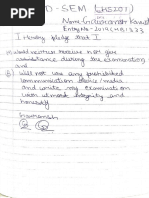 D-SEM (HS201)
Name-Gurusimran Kansal
Entry No-2019CHB1333
I Hereby pledge that I
would neither receive nor give
assistance during the examination
and
will not use any prohibited
communication device/media
and write my examination
with utmost integrity and
honestly